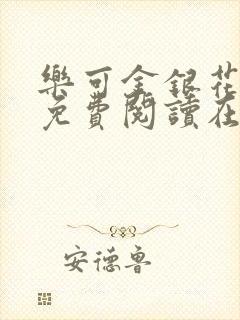 樂可金銀花
免費閱讀在
安德魯